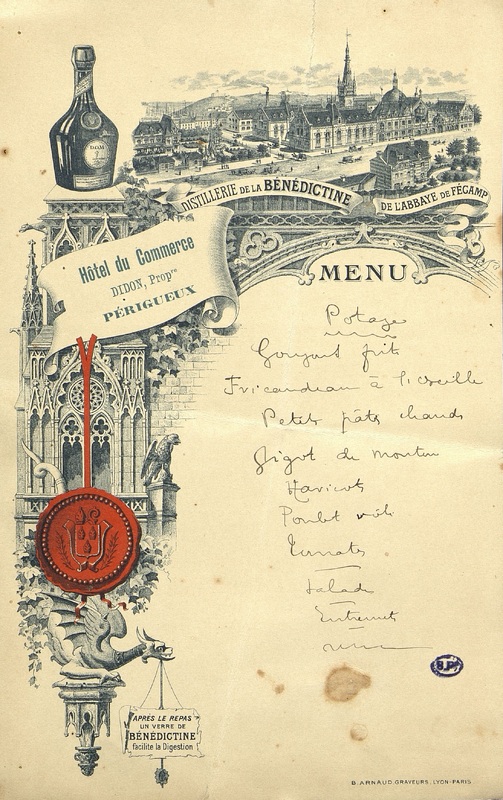 DISTILLERIE DE LA BÉNÉDICTINE DE L'ABBAYE DE FÉCAMP
Hôtel du Commerce
DIDON, Propre
PÉRIGUEUX
MENU
Potage
Goujons frits
Fricandeau à l'oseille
Petits pâtés chauds
Gigot de mouton
Haricots
Poulet rôti
Tomates
Salade
Entremets
APRÈS LE REPAS
UN VERRE DE
BÉNÉDICTINE
facilite la Digestion
B.P.
B. ARNAUD, GRAVEURS, LYON-PARIS